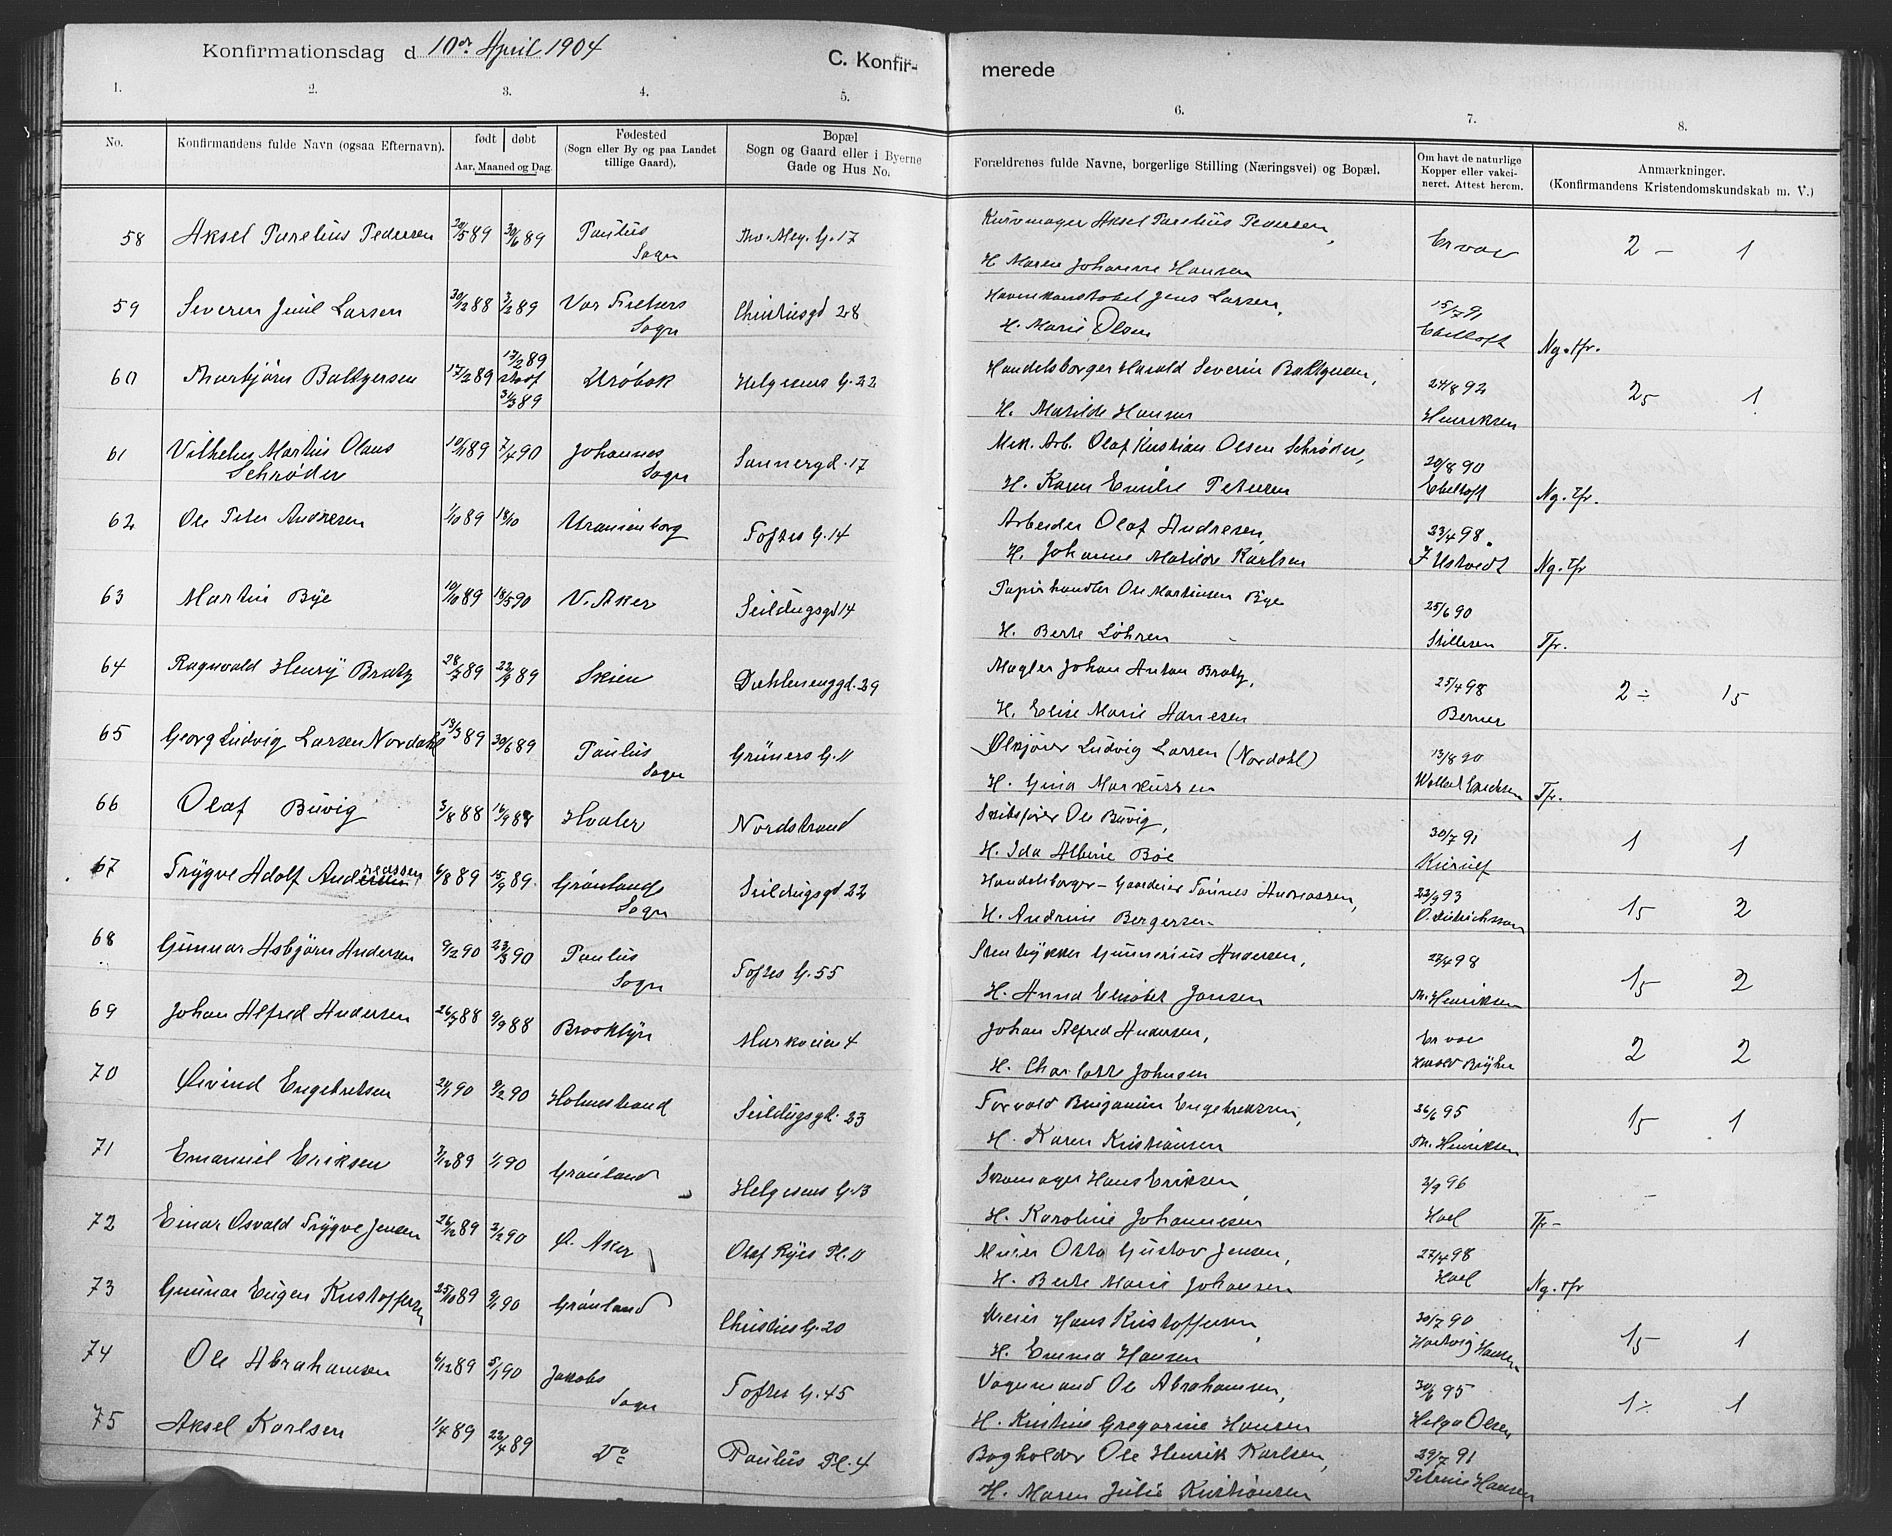 Konfirmationsdag d. 10de April 1904
C. Konfir-
merede
1. 2. 3. 4. 5. 6. 7. 8.
No.
Konfirmandens fulde Navn (ogsaa Efternavn).
født døbt
Aar, Maaned og Dag.
Fødested
(Sogn eller By og paa Landet
tillige Gaard).
Bopæl
Sogn og Gaard eller i Byerne
Gade og Hus No.
Forældrenes fulde Navne, borgerlige Stilling (Næringsvei) og Bopæl.
Om havt de naturlige
Kopper eller vakci-
neret. Attest herom.
Anmærkninger.
(Konfirmandens Kristendomskundskab m. V.)
58 Aksel Parelius Pedersen 20/5 89 30/6 89 Paulus Sogn Th. Mey. G. 17
Kurvmager Aksel Parelius Pedersen,
H. Maren Johanne Hansen
Er vac
2 - 1
59 Severin Juul Larsen 30/12 88 3/2 89 Vor Frelsers Sogn Christiesgd 28
Havnekonstabel Jens Larsen,
H. Marie Olsen
15/7 91
Ebeltoft
Ng. tfr.
60 Thorbjørn Baltzersen 17/2 89 17/2 89 31/3 89 Drøbak Helgesens G. 22
Handelsborger Harald Severin Baltzersen,
H. Matilde Hansen
24/8 92
Henriksen
25 1
61 Vilhelm Martin Olaus
Schrøder 10/11 89 7/4 90 Johannes Sogn Sannergd. 17
Mek. Arb. Olaf Kristian Olsen Schrøder,
H. Karen Emilie Petersen
20/8 90
Ebeltoft
Ng. Tfr.
62 Ole Peter Andresen 1/10 89 18/10 Uranienborg Toftes G. 14
Arbeider Olaf Andresen,
H. Johanne Matilde Karlsen
23/4 98.
F Ustvedt
Ng. Tfr
63 Martin Bye 10/10 89 18/5 90 V. Aker Seildugsgd 14
Papirhandler Ole Martinsen Bye
H. Berte Løhren
25/6 90
Stillesen
Tfr.
64 Ragnvald Henry Bratz 28/7 89 22/9 89 Skien Dæhlenenggd. 29
Mægler Johan Anton Bratz,
H. Elise Marie Hanesen
25/4 98
Berner
2 ÷ 15
65 Georg Ludvig Larsen Nordahl 13/3 89 30/6 89 Paulus Sogn Grüners G. 11
Ølkjører Ludvig Larsen (Nordahl)
H. Gina Markussen
13/8 90
Tfr.
66 Olaf Buvig 3/8 88 16/9 88 Hvaler Nordstrand
Skibsfører Ole Buvig,
H. Ida Albine Bøe
30/7 91
Kierulf
1 1
67 Trygve Adolf Andreassen 6/8 89 15/9 89. Grønlands Sogn Seildugsgd 22
Handelsborger - Gaardeier Tønnes Andreassen,
H. Andrine Bergersen
22/9 93
O. Didrichsson
15 2
68 Gunnar Asbjørn Andersen 9/2 90 23/3 90 Paulus Sogn Toftes G. 55
Stentrykker Gunnerius Andersen,
H. Anna Elisabet Jansen
27/4 98
Th. Henriksen
15 2
69 Johan Alfred Andersen 26/7 88 9/9 88 Brooklyn Markveien 4
Johan Alfred Andersen,
H. Charlotte Johnsen
Er vac
2 2
70 Øivind Engebretsen 24/1 90 9/2 90 Holmestrand Seildugsgd. 23
Torvald Benjamin Engebretsen,
H. Karen Kristiansen
26/6 95
Th. Henriksen
15 1
71 Emanuel Eriksen 7/12 89 1/1 90 Grønland Helgesens G. 13
Skomager Hans Eriksen,
H. Karoline Johannesen
3/9 96
Hoel
Tfr -
72 Einar Osvald Trygve Jensen 26/12 89 2/2 90 Ø. Aker Olaf Ryes Pl. 11
Murer Otto Gustav Jensen,
H. Berte Marie Johansen
27/4 98
Hoel
Ng. tfr
73 Gunnar Eugen Kristoffersen 25/10 89 9/1 90 Grønland Christies G. 20
Dreier Hans Kristoffersen,
H. Emma Hansen
30/7 90
Hartvig Hansen
15 1
74 Ole Abrahamsen 6/12 89 5/1 90 Jakobs Sogn Toftes G. 45
Vognmand Ole Abrahamsen,
H. Kristine Gregorine Hansen
30/6 95
Helga Olsen
1 ÷ 1
75 Aksel Karlsen 1/4 89 22/4 89 Do Paulus Pl. 4
Bogholder Ole Henrik Karlsen,
H. Maren Julie Kristiansen
29/7 91
Petrine Hansen